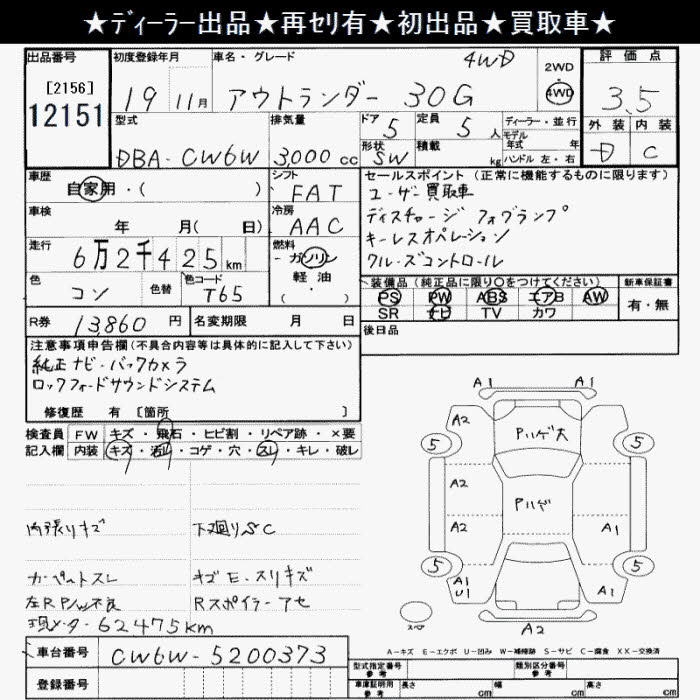 ★ディーラー出品★再セリ有★初出品★買取車★
出品番号 初度登録年月 車名・グレード 評価点
[2156]
12151
19 11月 アウトランダー 30G 4WD 2WD・4WD 3.5
型式 排気量 ドア 5 定員 5 人 ディーラー・並行 外装 内装
モデル年式 年
DBA-CW6W 3,000 cc 形状 SW 積載 kg ハンドル 左・右 D C
車歴 シフト セールスポイント (正常に機能するものに限ります)
自家用・( ) FAT ユーザー買取車
車検 冷房 ディスチャージ フォグランプ
年 月( 日) AAC キーレスオペレーション
走行 燃料 クルーズコントロール
6万2千425km ガソリン
軽油
・( )
色 色替 色コード 装備品 (純正品に限り○をつけてください) 新車保証書
コン T65 PS PW ABS エアB AW 有・無
SR ナビ TV カワ
R券 13,860 円 名変期限 月 日 後日品
注意事項申告欄 (不具合内容等は具体的に記入して下さい)
純正ナビ・バックカメラ
ロックフォードサウンドシステム
修復歴 有 [箇所 ]
検査員 FW キズ・飛石・ヒビ割・リペア跡・×要
記入欄 内装 キズ・汚れ・コゲ・穴・スレ・キレ・破レ
内張りキズ 下廻りSC
カーペットスレ キズE、スリキズ
左RP/W不良 Rスポイラーアセ
現メーター 62475km
A1 A1
A2 Pハゲ大
5 5
A2 Pハゲ
A2 A1
5 5
A1
U1 A1
スペア A2
A-キズ E-エクボ U-凹み W-補修跡 S-サビ C-腐食 XX-交換済
車台番号 CW6W-5200373 型式指定番号 参考 類別区分番号 参考
登録番号 車庫証明用 参考 長さ cm 幅 cm 高さ cm